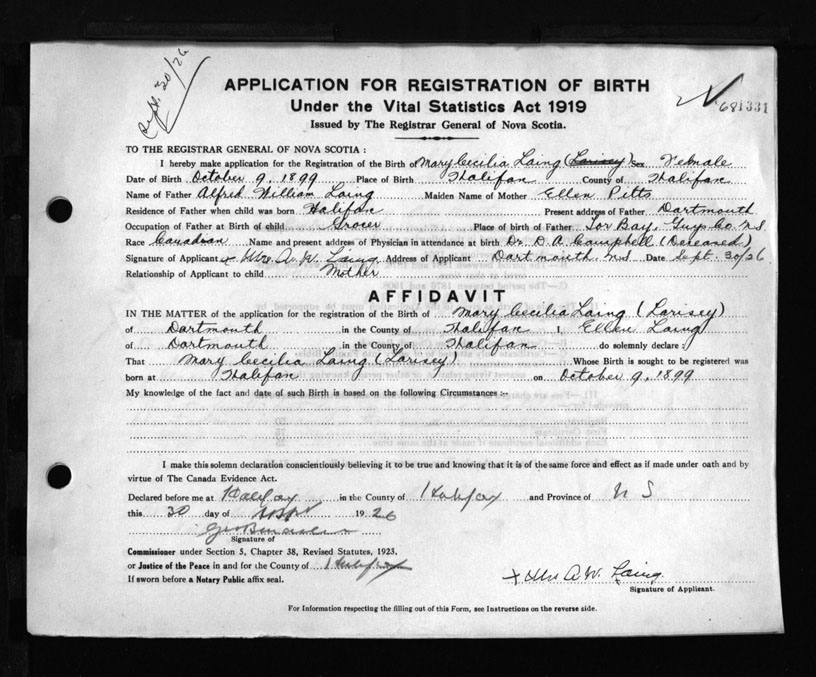 Sept. 30/26
APPLICATION FOR REGISTRATION OF BIRTH
Under the Vital Statistics Act 1919
Issued by The Registrar General of Nova Scotia.
681331
TO THE REGISTRAR GENERAL OF NOVA SCOTIA :
I hereby make application for the Registration of the Birth of Mary Cecilia Laing (Larisey) Sex Female
Date of Birth October 9, 1899 Place of Birth Halifax County of Halifax
Name of Father Alfred William Laing Maiden Name of Mother Ellen Pitts
Residence of Father when child was born Halifax Present address of Father Dartmouth
Occupation of Father at Birth of child Grocer Place of birth of Father Tor Bay. Guys Co. N.S
Race Canadian Name and present address of Physician in attendance at birth Dr. D. A. Campbell (Deceased)
Signature of Applicant x Mrs. A. W. Laing Address of Applicant Dartmouth. N.S Date Sept. 30/26
Relationship of Applicant to child Mother
AFFIDAVIT
IN THE MATTER of the application for the registration of the Birth of Mary Cecilia Laing (Larisey)
of Dartmouth in the County of Halifax I, Ellen Laing
of Dartmouth in the County of Halifax do solemnly declare ;
That Mary Cecilia Laing (Larisey) Whose Birth is sought to be registered was
born at Halifax on October 9, 1899
My knowledge of the fact and date of such Birth is based on the following Circumstances :-
I make this solemn declaration conscientiously believing it to be true and knowing that it is of the same force and effect as if made under oath and by
virtue of The Canada Evidence Act.
Declared before me at Halifax in the County of Halifax and Province of N S
this 30 day of Sept 1926
Signature of
Commissioner under Section 5, Chapter 38, Revised Statutes, 1923.
or Justice of the Peace in and for the County of Halifax
If sworn before a Notary Public affix seal.
x Mrs A. W. Laing.
Signature of Applicant.
For Information respecting the filling out of this Form, see Instructions on the reverse side.